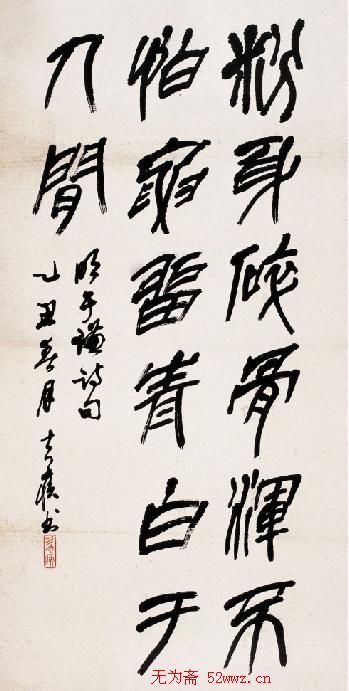 粉身碎骨渾不
怕要留青白于
人間
明于謙詩句
乙丑春月
无为斋 52wwz.cn